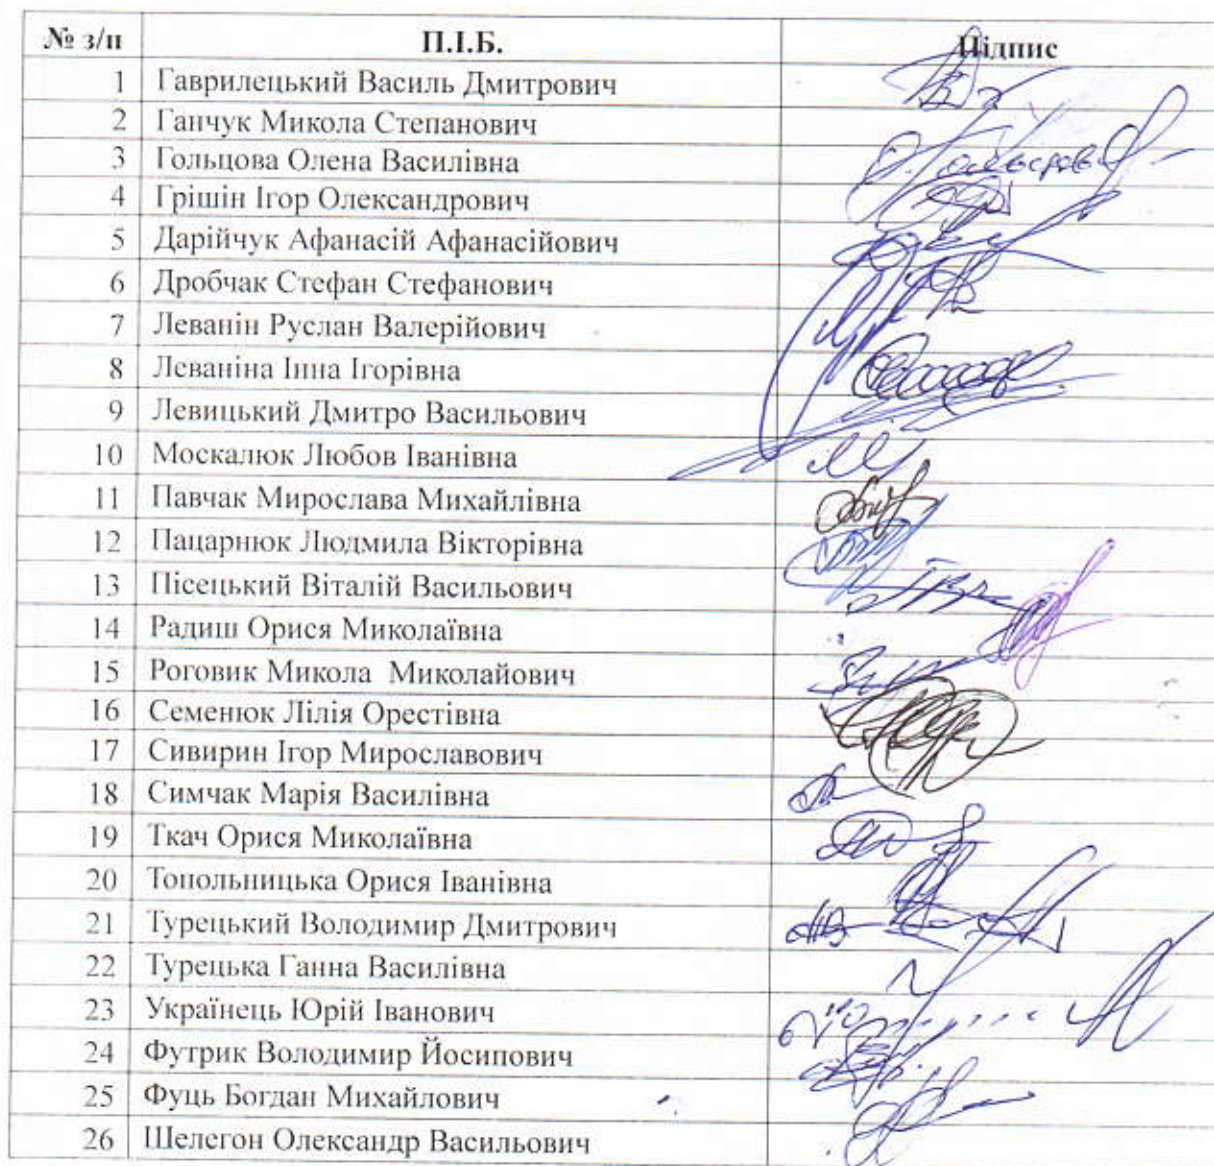 № з/п П.І.Б. Підпис
1 Гаврилецький Василь Дмитрович
2 Ганчук Микола Степанович
3 Гольцова Олена Василівна
4 Грішин Ігор Олександрович
5 Дарійчук Афанасій Афанасійович
6 Дробчак Стефан Стефанович
7 Леванін Руслан Валерійович
8 Леваніна Інна Ігорівна
9 Левицький Дмитро Васильович
10 Москалюк Любов Іванівна
11 Павчак Мирослава Михайлівна
12 Пацарнюк Людмила Вікторівна
13 Пісецький Віталій Васильович
14 Радиш Орися Миколаївна
15 Роговик Микола Миколайович
16 Семенюк Лілія Орестівна
17 Сивирин Ігор Мирославович
18 Симчак Марія Василівна
19 Ткач Орися Миколаївна
20 Топольницька Орися Іванівна
21 Турецький Володимир Дмитрович
22 Турецька Ганна Василівна
23 Українець Юрій Іванович
24 Футрик Володимир Йосипович
25 Фуць Богдан Михайлович
26 Шелегон Олександр Васильович